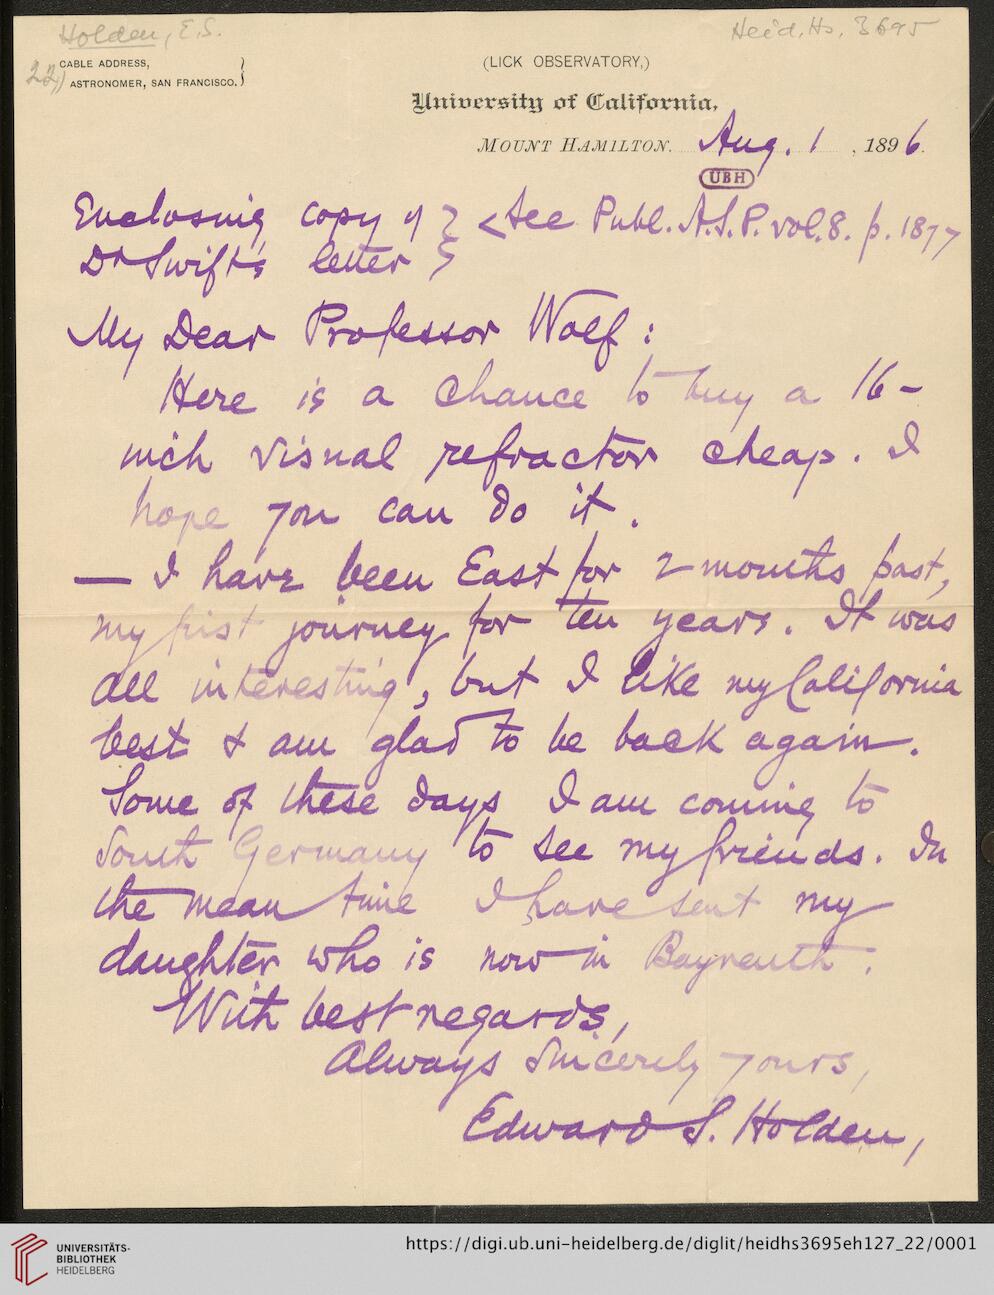 Holden, E.S.
Heid. Hs. 3695
22)
CABLE ADDRESS,
ASTRONOMER, SAN FRANCISCO.
(LICK OBSERVATORY,)
University of California,
MOUNT HAMILTON. Aug. 1, 1896.
UBH
Enclosing copy of } < See Publ. A.S.P. vol. 8. p. 187
Dr Swift's letter }
My Dear Professor Wolf:
Here is a chance to buy a 16-
inch visual refractor cheap. I
hope you can do it.
— I have been East for 2 months past,
my first journey for ten years. It was
all interesting, but I like my California
best & am glad to be back again.
Some of these days I am coming to
South Germany to see my friends. In
the mean time I have sent my
daughter who is now in Bayreuth.
With best regards,
Always Sincerely yours,
Edward S. Holden,
UNIVERSITÄTS-
BIBLIOTHEK
HEIDELBERG
https://digi.ub.uni-heidelberg.de/diglit/heidhs3695eh127_22/0001